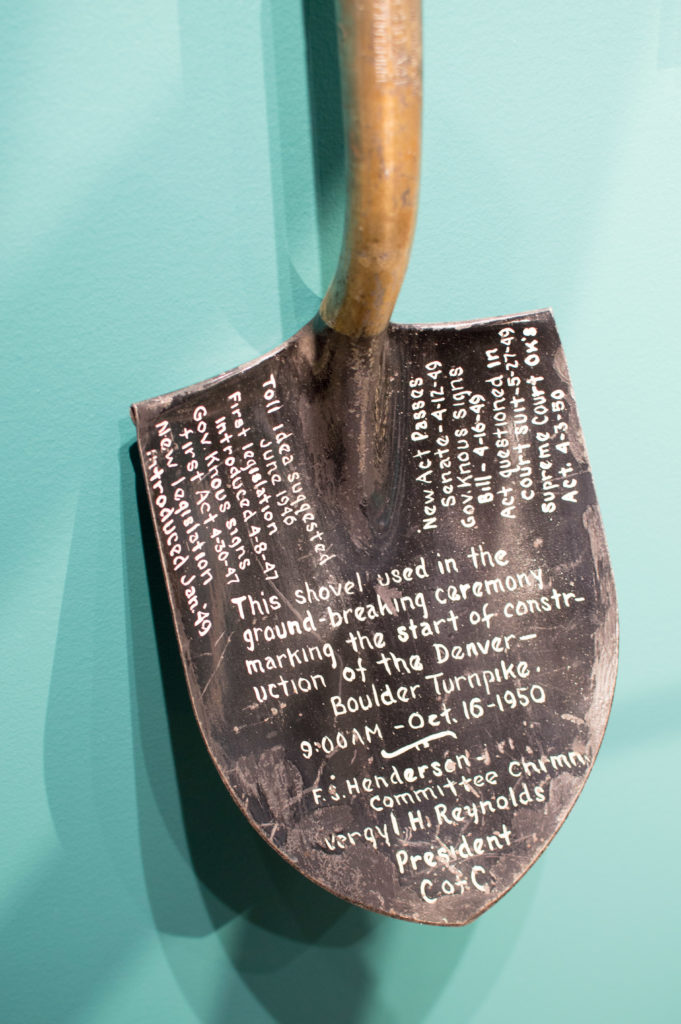 Toll idea suggested
June 1946
First legislation
introduced 4-8-47
Gov Knous signs
first Act 4-30-47
New legislation
introduced Jan. '49
New Act Passes
Senate - 4-12-49
Gov. Knous signs
Bill - 4-16-49
Act questioned In
court suit - 5-27-49
Supreme Court OK's
Act. 4-3-50
This shovel used in the
ground-breaking ceremony
marking the start of constr-
uction of the Denver-
Boulder Turnpike.
9:00 AM - Oct. 16-1950
F.S. Henderson
Committee Chrmn.
Vergyl H. Reynolds
President
C of C.